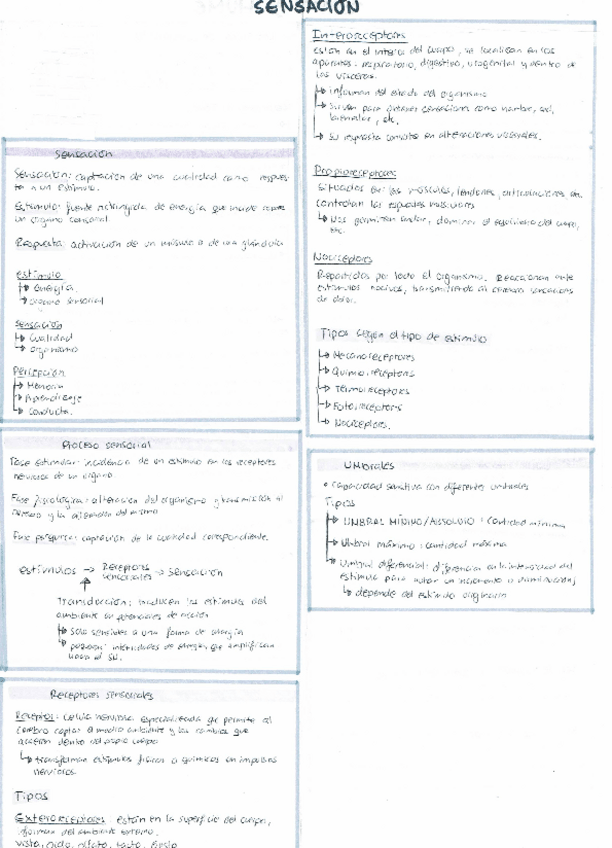 SENSACIÓN
Sensación
Sensación: captación de una cualidad como respues-
ta a un estímulo.
Estímulo: fuente restringida de energía que incide sobre
un órgano sensorial.
Respuesta: activación de un músculo o de una glándula
estímulo
energía
órgano sensorial
Sensación
Cualidad
organismo
Percepción
Memoria
Aprendizaje
Conducta.
Proceso sensorial
Fase estimular: incidencia de un estímulo en los receptores
nerviosos de un órgano.
Fase fisiológica: alteración del organismo y transmisión al
cerebro y la alteración del mismo
Fase psíquica: captación de la cualidad correspondiente.
estímulos → Receptores sensoriales → Sensación
Transducción: traducen los estímulos del
ambiente en potenciales de acción
Solo sensibles a una forma de energía
pequeñas intensidades de energía que amplifican
hacia el SN.
Receptores sensoriales
Receptor: célula nerviosa especializada que permite al
cerebro captar el medio ambiente y los cambios que
dentro del propio cuerpo
transforman estímulos físicos o químicos en impulsos
nerviosos
Tipos
Exteroceptores: están en la superficie del cuerpo,
informan del ambiente externo.
vista, oído, olfato, tacto, gusto
Interoceptores
Están en el interior del cuerpo, se localizan en los
aparatos: respiratorio, digestivo, urogenital y dentro de
las vísceras.
informan del estado del organismo
Sirven para obtener sensaciones como hambre, sed,
bienestar, etc.
Su respuesta consiste en alteraciones viscerales.
Propioceptores
Situados en: los músculos, tendones, articulaciones etc.
controlan las respuestas musculares
Nos permiten andar, dominar el equilibrio del cuerpo,
etc.
Nociceptores
Repartidos por todo el organismo. Reaccionan ante
estímulos nocivos, transmitiendo al cerebro sensaciones
de dolor.
Tipos según el tipo de estímulo
Mecanoreceptores
Quimioreceptores
Termoreceptores
Fotoreceptores
Nociceptores.
Umbrales
• capacidad sensitiva con diferentes umbrales
Tipos
UMBRAL MÍNIMO/ABSOLUTO: Cantidad mínima
Umbral máximo: cantidad máxima
Umbral diferencial: diferencia en la intensidad del
estímulo para notar un incremento o disminución
depende del estímulo originario